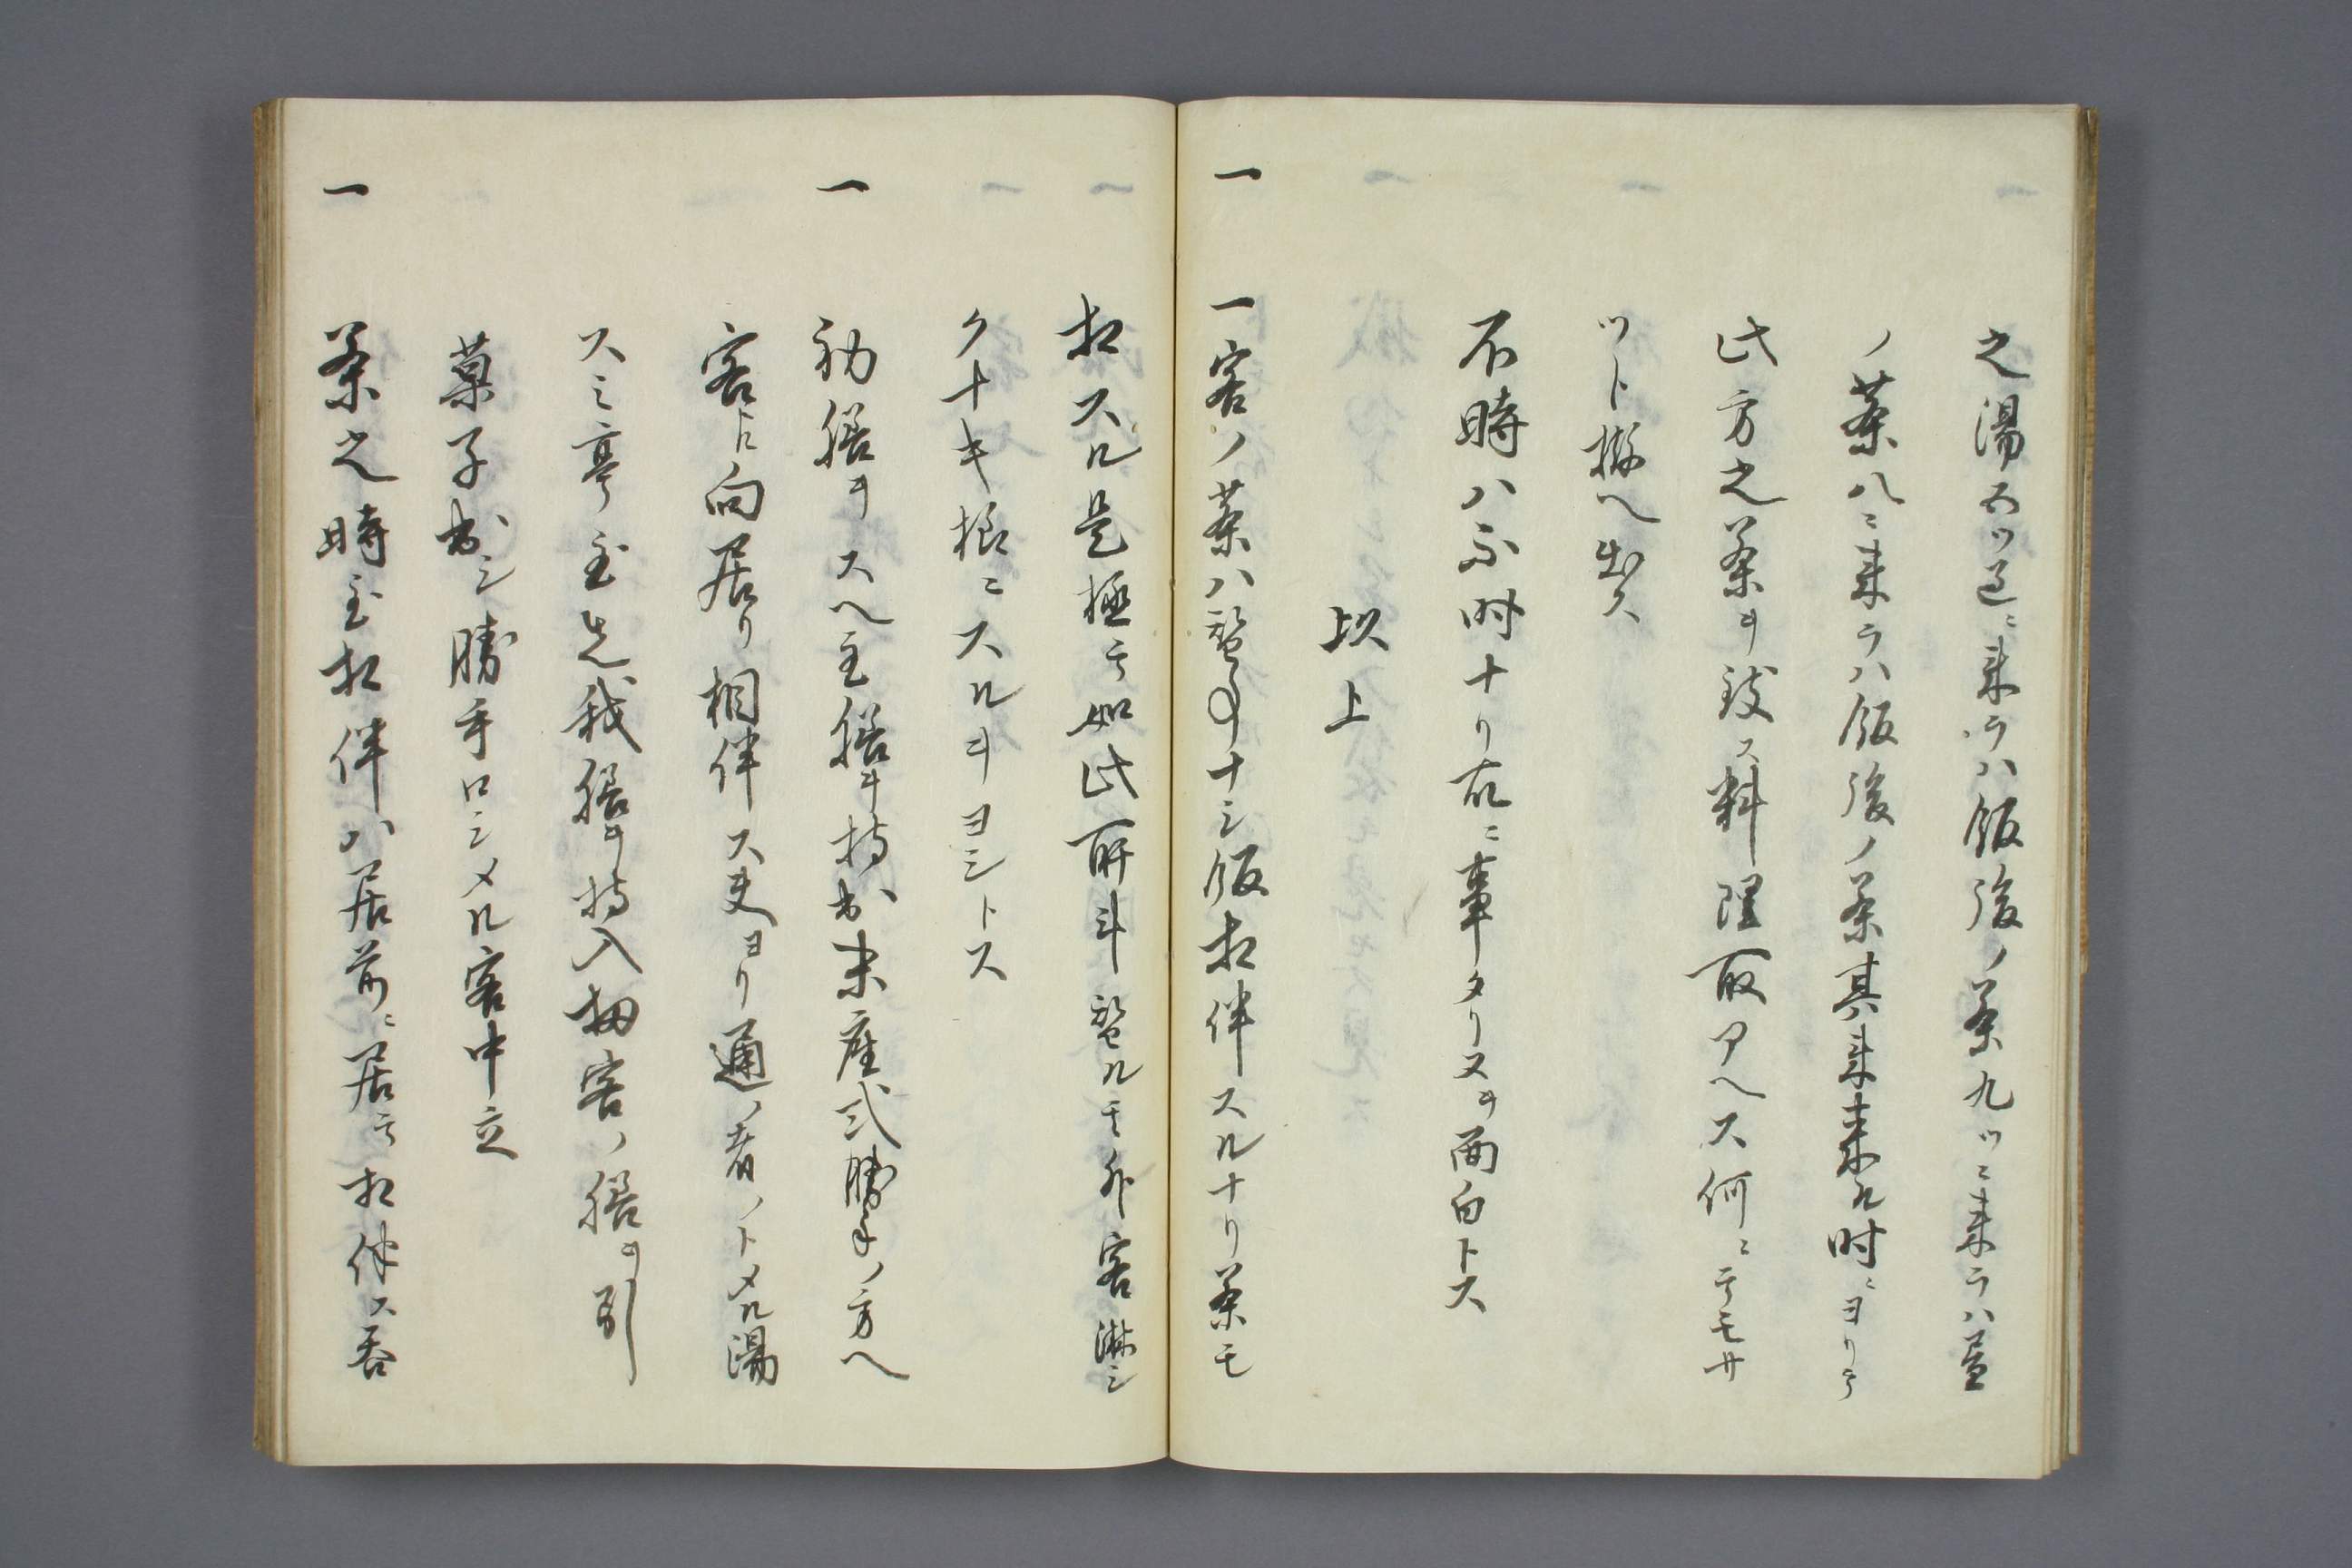 之湯五ツ過ニ来ラハ飯後ノ茶九ツニ来ラハ昼
ノ茶八ニ来ラハ飯後ノ茶其来ル時ニヨリテ
此方之茶ヲ致ス料理取アヘス何ニテモサ
ツト拵ヘ出ス
不時ハ不時ナリ故ニ事タリヌヲ面白トス
以上
一 一客ノ茶ハ盬事ナシ飯相伴スルナリ茶モ
相スル是極テ如此所斗ルモ外客淋シ
クナキ様ニスルヲヨシトス
一 初膳ヲスヘ主膳ヲ持出末座或勝手ノ方ヘ
客ト向居リ相伴ス夫ヨリ通ノ者ノトメル湯
スミ亭主先我膳ヲ持入扨客ノ膳ヲ引
菓子出シ勝手口シメル客中立
一 茶之時主相伴ハ居前ニ居テ相伴ス呑